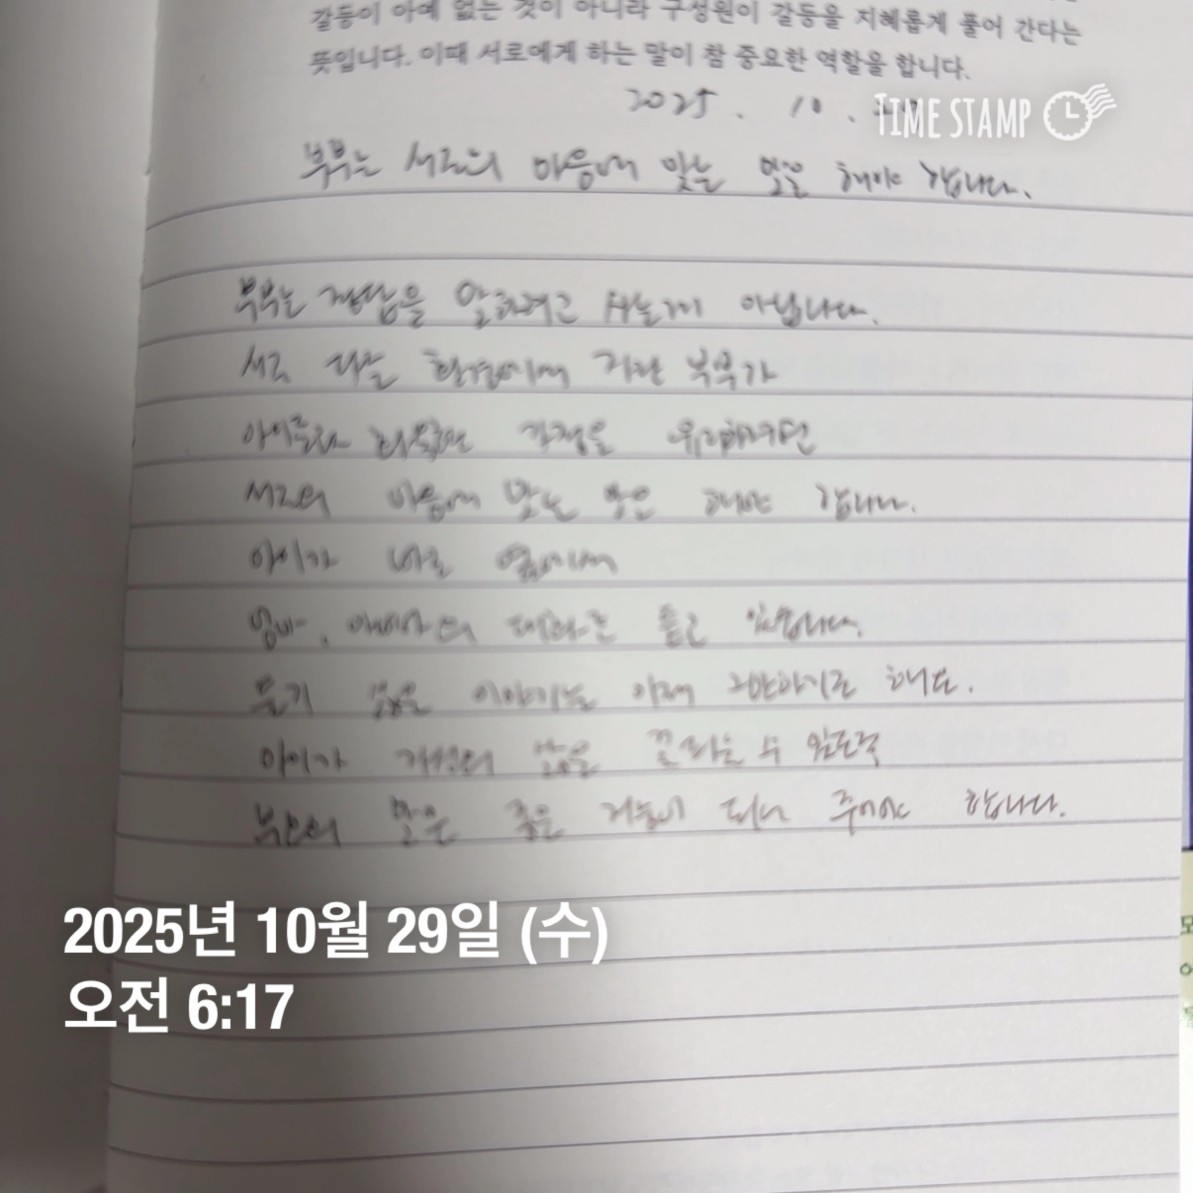 갈등이 아예 없는 것이 아니라 구성원이 갈등을 지혜롭게 풀어 간다는
뜻입니다. 이때 서로에게 하는 말이 참 중요한 역할을 합니다.
2025. 10.
TIME STAMP
부부는 서로의 마음에 맞는 말을 해야 합니다.
부부는 정답을 말하려고 사는게 아닙니다.
서로 다른 환경에서 자란 부부가
아이들과 화목한 가정을 유지하려면
서로의 마음에 맞는 말을 해야 합니다.
아이가 바로 옆에서
엄마, 아빠의 대화를 듣고 있습니다.
듣기 싫은 이야기는 이제 그만하기로 해요.
아이가 개성의 많은 꽃 피울 수 있도록
부모의 말은 좋은 거름이 되어 주어야 합니다.
2025년 10월 29일 (수)
오전 6:17